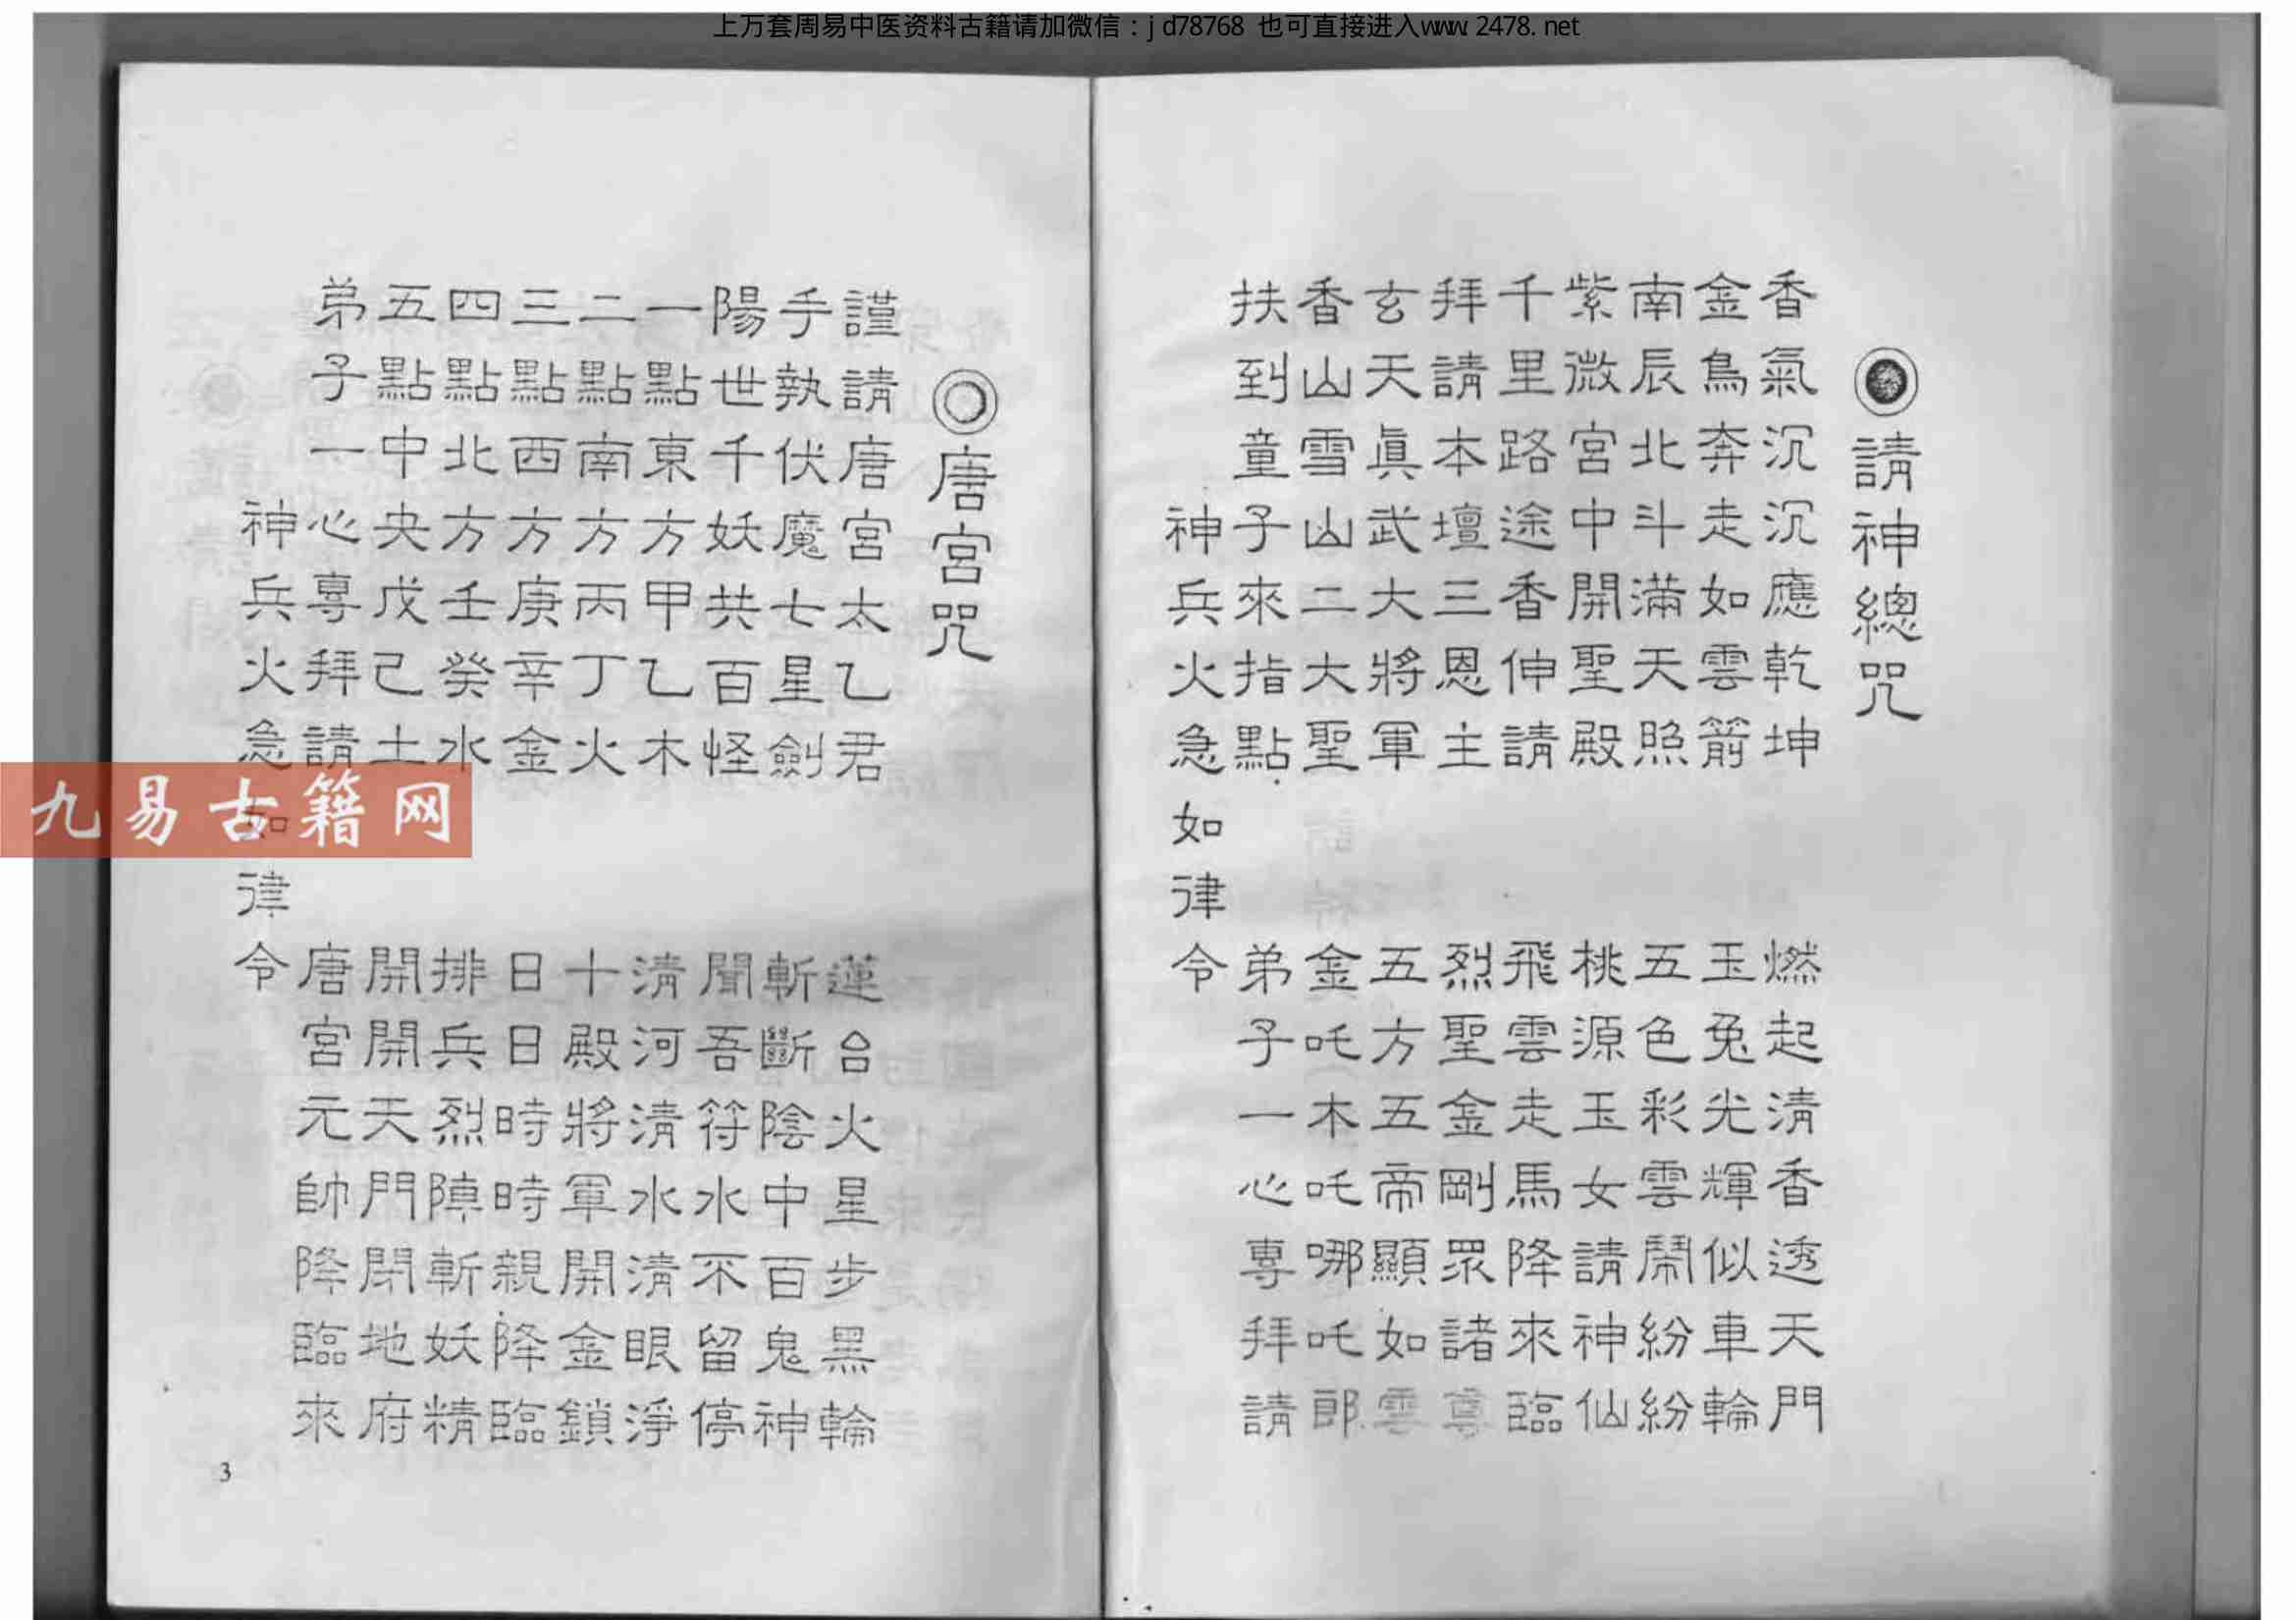 上万套周易中医资料古籍请加微信：jd78768 也可直接进入www.2478.net
請神總咒
香氣沉沉應乾坤 燃起清香透天門
金鳥奔走如雲箭 玉兔光輝似車輪
南辰北斗滿天照 五色彩雲鬧紛紛
紫微宮中開聖殿 桃源玉女請神仙
千里路途香伸請 飛雲走馬降來臨
拜請本壇三恩主 烈聖金剛眾諸尊
玄天真武大將軍 五方五帝顯如雲
香山雪山二大聖 金吒木吒哪吒郎
扶到童子來指點 弟子一心專拜請
神兵火急如律令
唐宮咒
謹請唐宮太乙君 蓮台火星步黑輪
手執伏魔七星劍 斬斷陰中百鬼神
陽世千妖共百怪 聞吾符水不留停
一點東方甲乙木 清河清水清眼淨
二點南方丙丁火 十殿將軍開金鎖
三點西方庚辛金 日日時時親降臨
四點北方壬癸水 排兵烈陣斬妖精
五點中央戊己土 開開天門閉地府
弟子一心專拜請 唐宮元帥降臨來
神兵火急如律令
3
九易古籍网